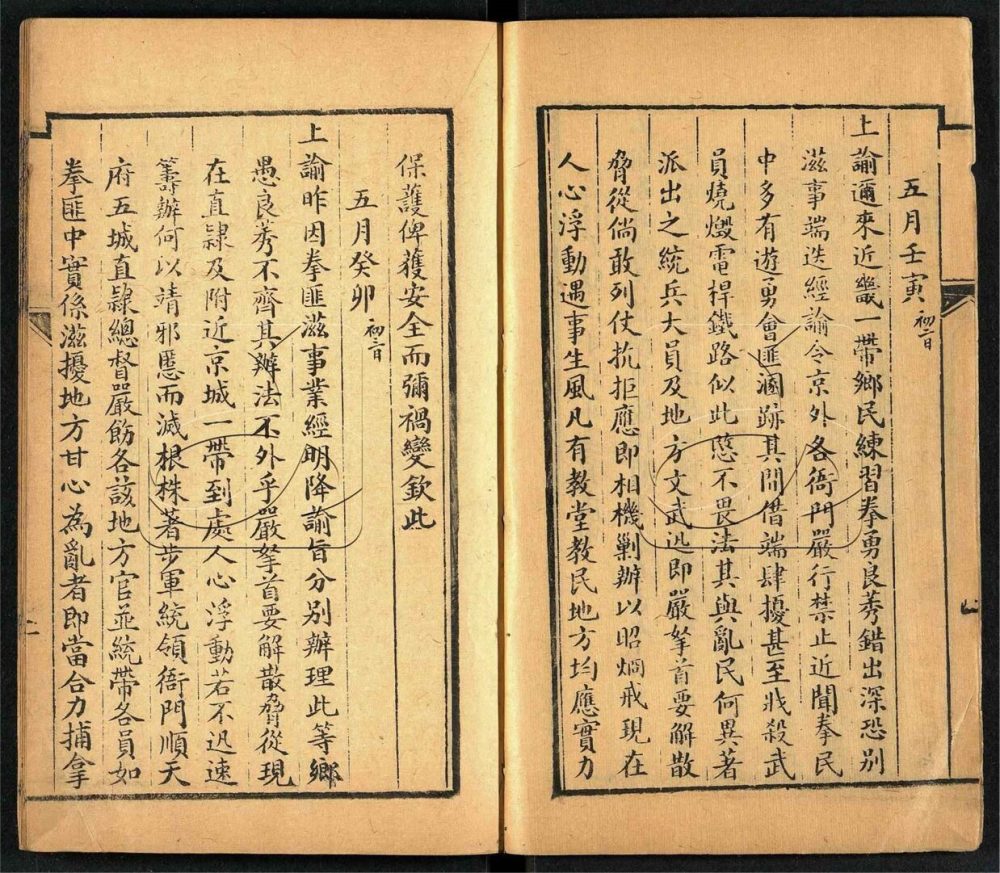 五月壬寅初二日
上諭邇來近畿一帶鄉民練習拳勇良莠錯出深恐別
滋事端迭經諭令京外各衙門嚴行禁止近聞拳民
中多有遊勇會匪溷跡其間借端肆擾甚至戕殺武
員燒燬電桿鐵路似此憨不畏法其與亂民何異著
派出之統兵大員及地方文武迅即嚴拏首要解散
脅從倘敢列仗抗拒應即相機剿辦以昭烱戒現在
人心浮動遇事生風凡有教堂教民地方均應實力
保護俾獲安全而彌禍變欽此
五月癸卯初三日
上諭昨因拳匪滋事業經明降諭旨分別辦理此等鄉
愚良莠不齊其辦法不外乎嚴拏首要解散脅從現
在直隸及附近京城一帶到處人心浮動若不迅速
籌辦何以靖邪慝而滅根株著步軍統領衙門順天
府五城直隸總督嚴飭各該地方官並統帶各員如
拳匪中實係滋擾地方甘心為亂者即當合力捕拿